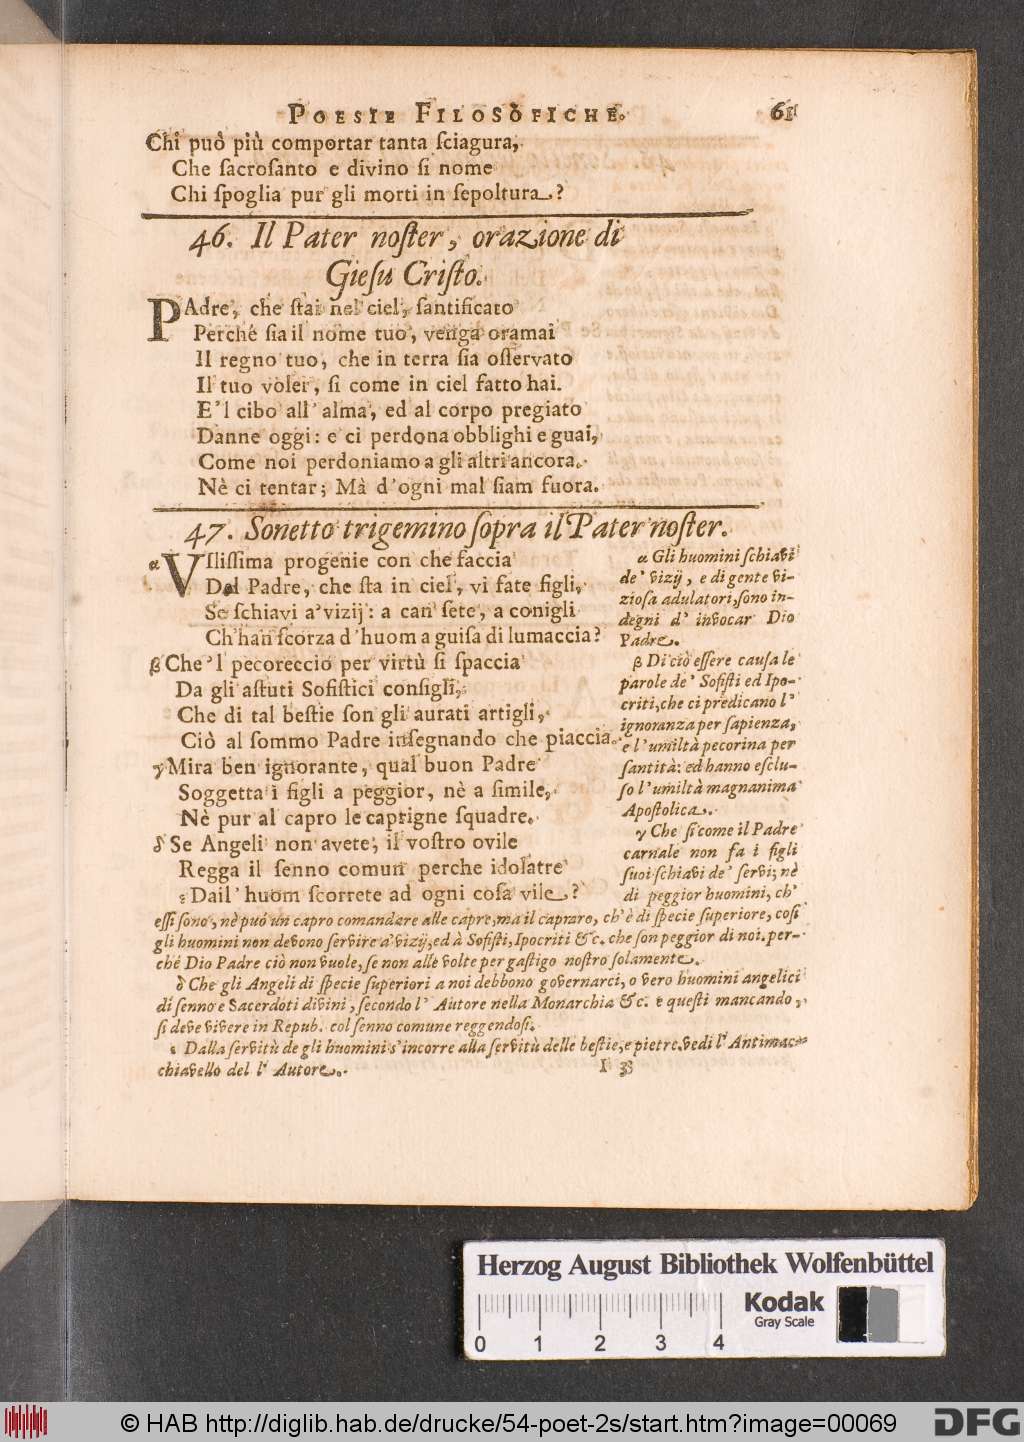 POESIE FILOSOFICHE. 61
Chi può più comportar tanta ſciagura,
Che ſacroſanto e divino ſi nome
Chi ſpoglia pur gli morti in ſepoltura?
46. Il Pater noſter, orazione di
Gieſu Criſto.
PAdre, che ſtai nel ciel, ſantificato
Perché ſia il nome tuo, venga oramai
Il regno tuo, che in terra ſia oſſervato
Il tuo voler, ſi come in ciel fatto hai.
E'l cibo all' alma, ed al corpo pregiato
Danne oggi: e ci perdona obblighi e guai,
Come noi perdoniamo a gli altri ancora.
Nè ci tentar; Mà d'ogni mal ſiam fuora.
47. Sonetto trigemino ſopra il Pater noſter.
α Vſliſſima progenie con che faccia
Del Padre, che ſta in ciel, vi fate figli,
Se ſchiavi a' vizij: a can' ſete, a conigli
Ch'han ſcorza d'huom a guiſa di lumaccia?
β Che'l pecoreccio per virtù ſi ſpaccia
Da gli aſtuti Sofiſtici conſigli,
Che di tal beſtie ſon gli aurati artigli,
Ciò al ſommo Padre inſegnando che piaccia.
γ Mira ben ignorante, qual buon Padre
Soggetta i figli a peggior, nè a ſimile,
Nè pur al capro le caprigne ſquadre.
δ Se Angeli non avete, il voſtro ovile
Regga il ſenno comun perche idolatre
ε Dall' huom ſcorrete ad ogni coſa vile?
α Gli huomini ſchiavi
de' vizij, e di gente vi-
zioſa adulatori, ſono in-
degni d' invocar Dio
Padre.
β Di ciò eſſere cauſa le
parole de' Sofiſti ed Ipo-
criti, che ci predicano l'
ignoranza per ſapienza,
e l'umiltà pecorina per
ſantità: ed hanno eſclu-
ſo l'umiltà magnanima
Apoſtolica.
γ Che ſi come il Padre
carnale non fa i figli
ſuoi ſchiavi de' ſervi; nè
di peggior huomini, ch'
eſſi ſono, nè puó un capro comandare alle capre, ma il capraro, ch'è di ſpecie ſuperiore, coſi
gli huomini non devono ſervire a' vizij, ed à Sofiſti, Ipocriti &c. che ſon peggior di noi. per-
ché Dio Padre ciò non vuole, ſe non alle volte per gaſtigo noſtro ſolamente.
δ Che gli Angeli di ſpecie ſuperiori a noi debbono governarci, o vero huomini angelici
di ſenno e Sacerdoti divini, ſecondo l' Autore nella Monarchia &c. e queſti mancando,
ſi deve vivere in Repub. col ſenno comune reggendoſi.
ε Dalla ſervitù de gli huomini s'incorre alla ſervitù delle beſtie, e pietre. vedi l' Antimac-
chiavello del l' Autore.
I 3
Herzog August Bibliothek Wolfenbüttel
0 1 2 3 4
Kodak
Gray Scale
© HAB http://diglib.hab.de/drucke/54-poet-2s/start.htm?image=00069
DFG